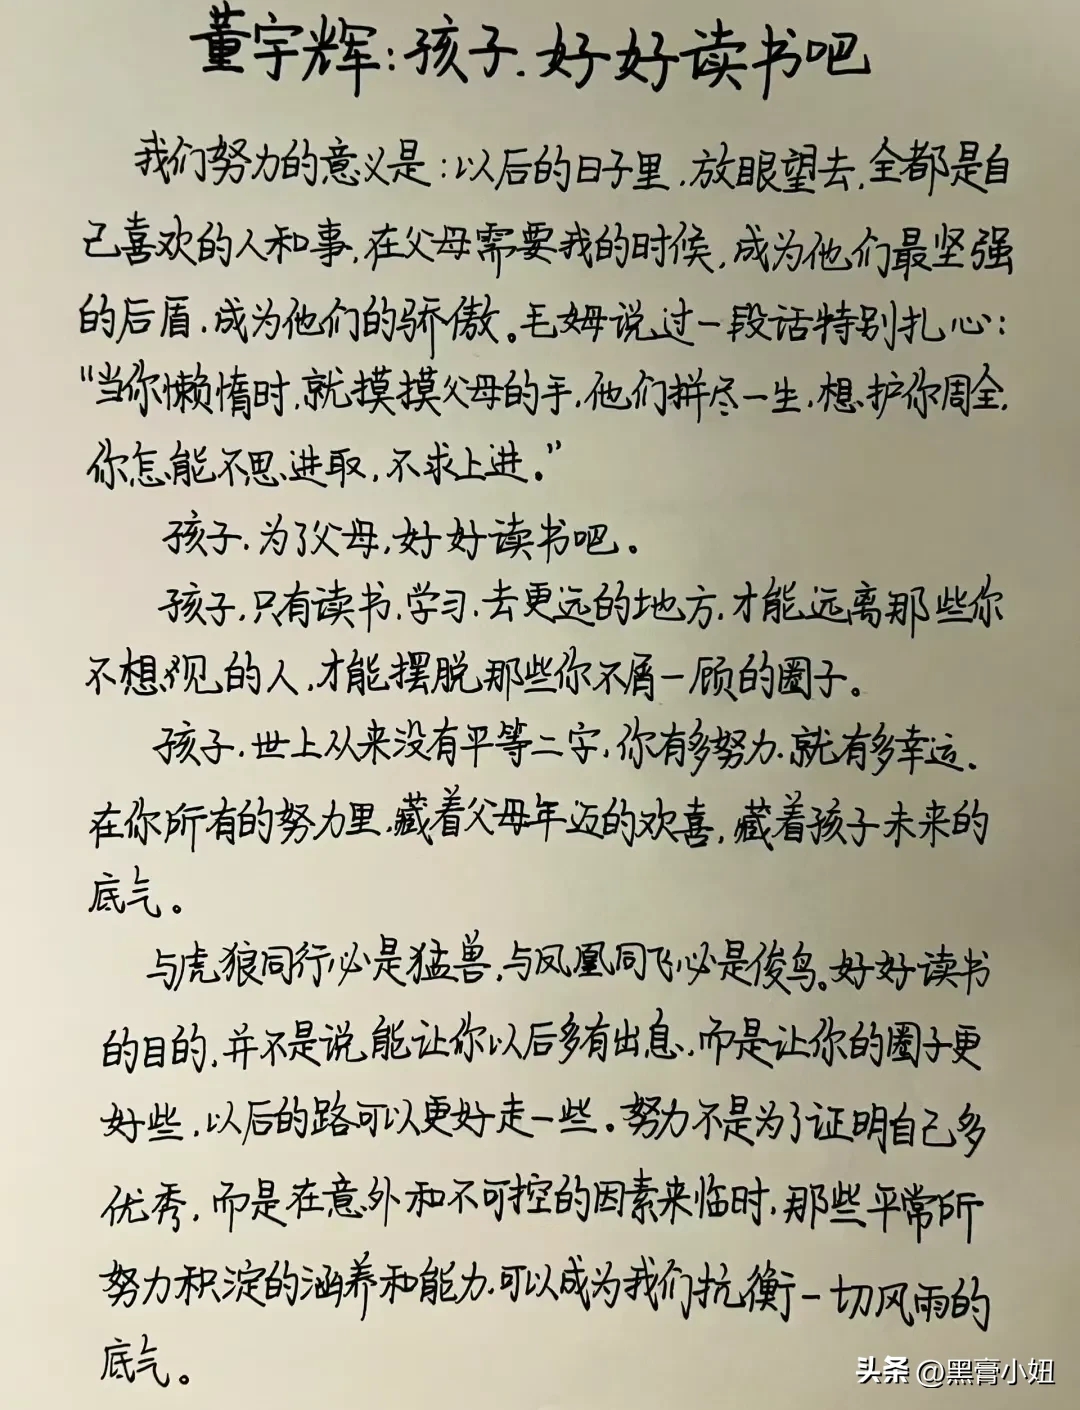 董宇辉:孩子.好好读书吧
我们努力的意义是:以后的日子里,放眼望去,全都是自
己喜欢的人和事,在父母需要我的时候,成为他们最坚强
的后盾,成为他们的骄傲。毛姆说过一段话特别扎心:
“当你懒惰时,就摸摸父母的手,他们拼尽一生,想护你周全,
你怎能不思进取,不求上进。”
孩子,为了父母,好好读书吧。
孩子,只有读书,学习,去更远的地方,才能远离那些你
不想见的人,才能摆脱那些你不屑一顾的圈子。
孩子,世上从来没有平等二字,你有多努力,就有多幸运.
在你所有的努力里,藏着父母年迈的欢喜,藏着孩子未来的
底气。
与虎狼同行必是猛兽,与凤凰同飞必是俊鸟。好好读书
的目的,并不是说能让你以后多有出息,而是让你的圈子更
好些,以后的路可以更好走一些。努力不是为了证明自己多
优秀,而是在意外和不可控的因素来临时,那些平常所
努力积淀的涵养和能力,可以成为我们抗衡一切风雨的
底气。
头条 @黑膏小妞